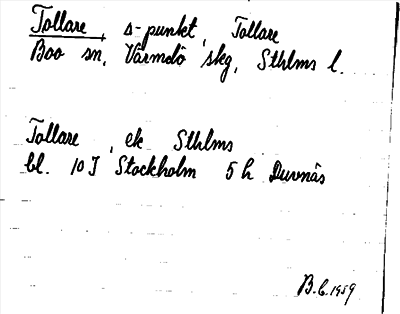 Tollare, s-punkt, Tollare
Boo sn, Värmdö skg, Sthlms l.
Tollare, ek Sthlms
bl. 10 I Stockholm 5 h Duvnäs
B.C. 1959